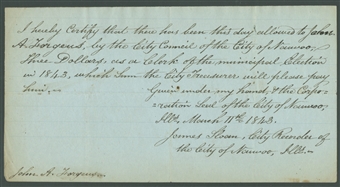 I hereby Certify that there has been this day allowed to John
A. Forgeus, by the City Council of the City of Nauvoo,
Three Dollars, as a Clerk of the municipal Election
in 1843, which Sum the City Treasurer will please pay
him.
Given under my hand & the Corpo-
ration Seal of the City of Nauvoo,
Ills. March 11th 1843.
James Sloan, City Recorder of
the City of Nauvoo, Ills.
John A. Forgeus